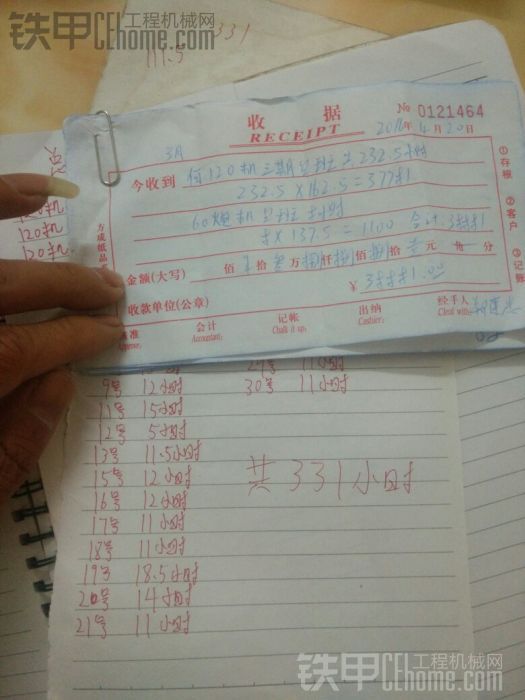 铁甲CEhome.com 工程机械网
331
111.5
收 据
No 0121464
RECEIPT
2016年4月20日
3月
今收到
何120机三期总班为232.5小时
232.5×162.5=37781
60炮机总班8小时
8×137.5=1100 合计:38881
金额(大写) 佰 叁 万 捌 仟 捌 佰 捌 拾 壹 元 角 分
¥38881.00
收款单位(公章)
核准 会计 记帐 出纳 经手人
Approve: Accountant: Chalk it up: Cashier: Cleal with:
①存根 ②客户 ③记账
方成纸品
120机
120机
120机
29号 11小时
9号 12小时 30号 11小时
11号 15小时
12号 5小时
13号 11.5小时
15号 12小时
16号 12小时
17号 11小时
18号 11小时
19号 18.5小时
20号 14小时
21号 11小时
共331小时
铁甲CEhome.com 工程机械网